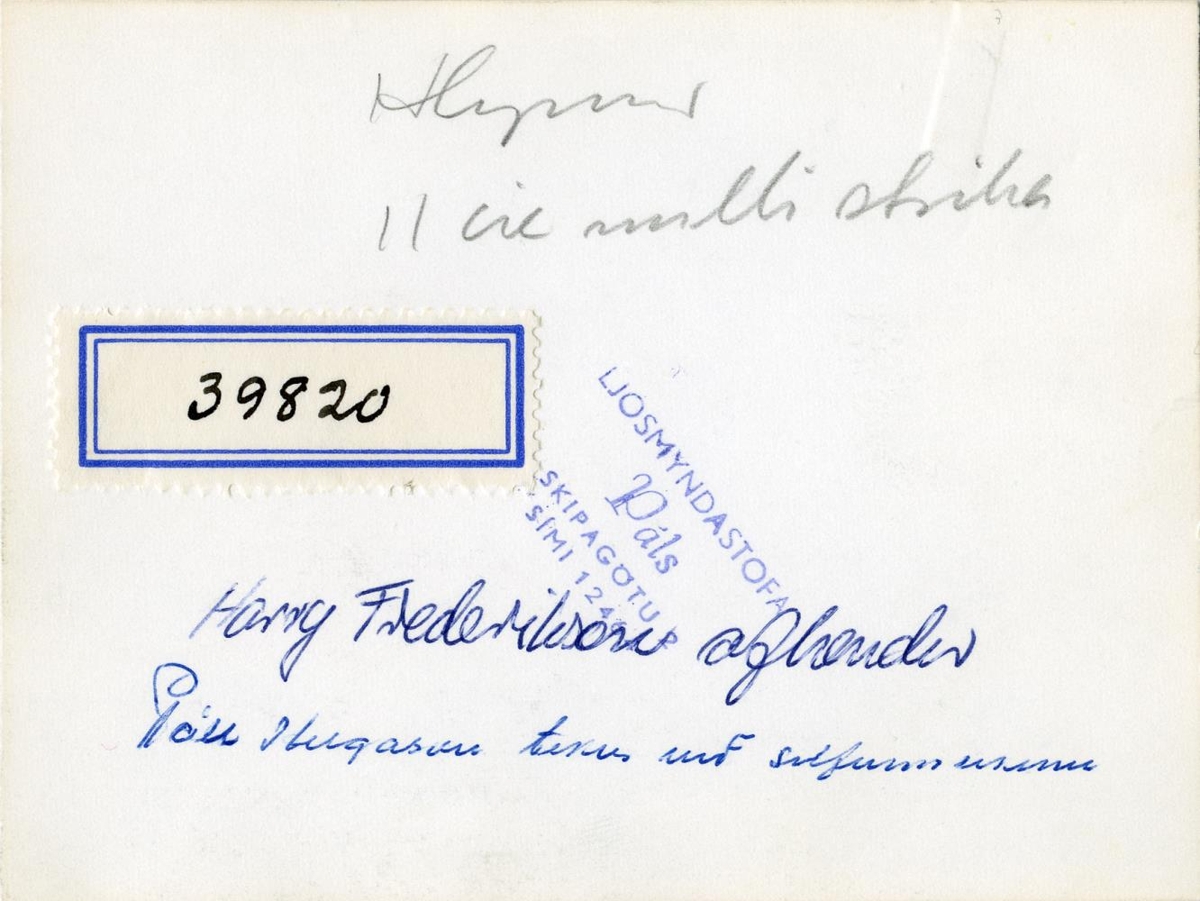 Hlynur
11 cic milli strika
39820
LJOSMYNDASTOFA
Páls
SKIPAGÖTU
SÍMI 124
Harry Frederiksen afhendir
Páll Hugason tekur við silfurmerkinu